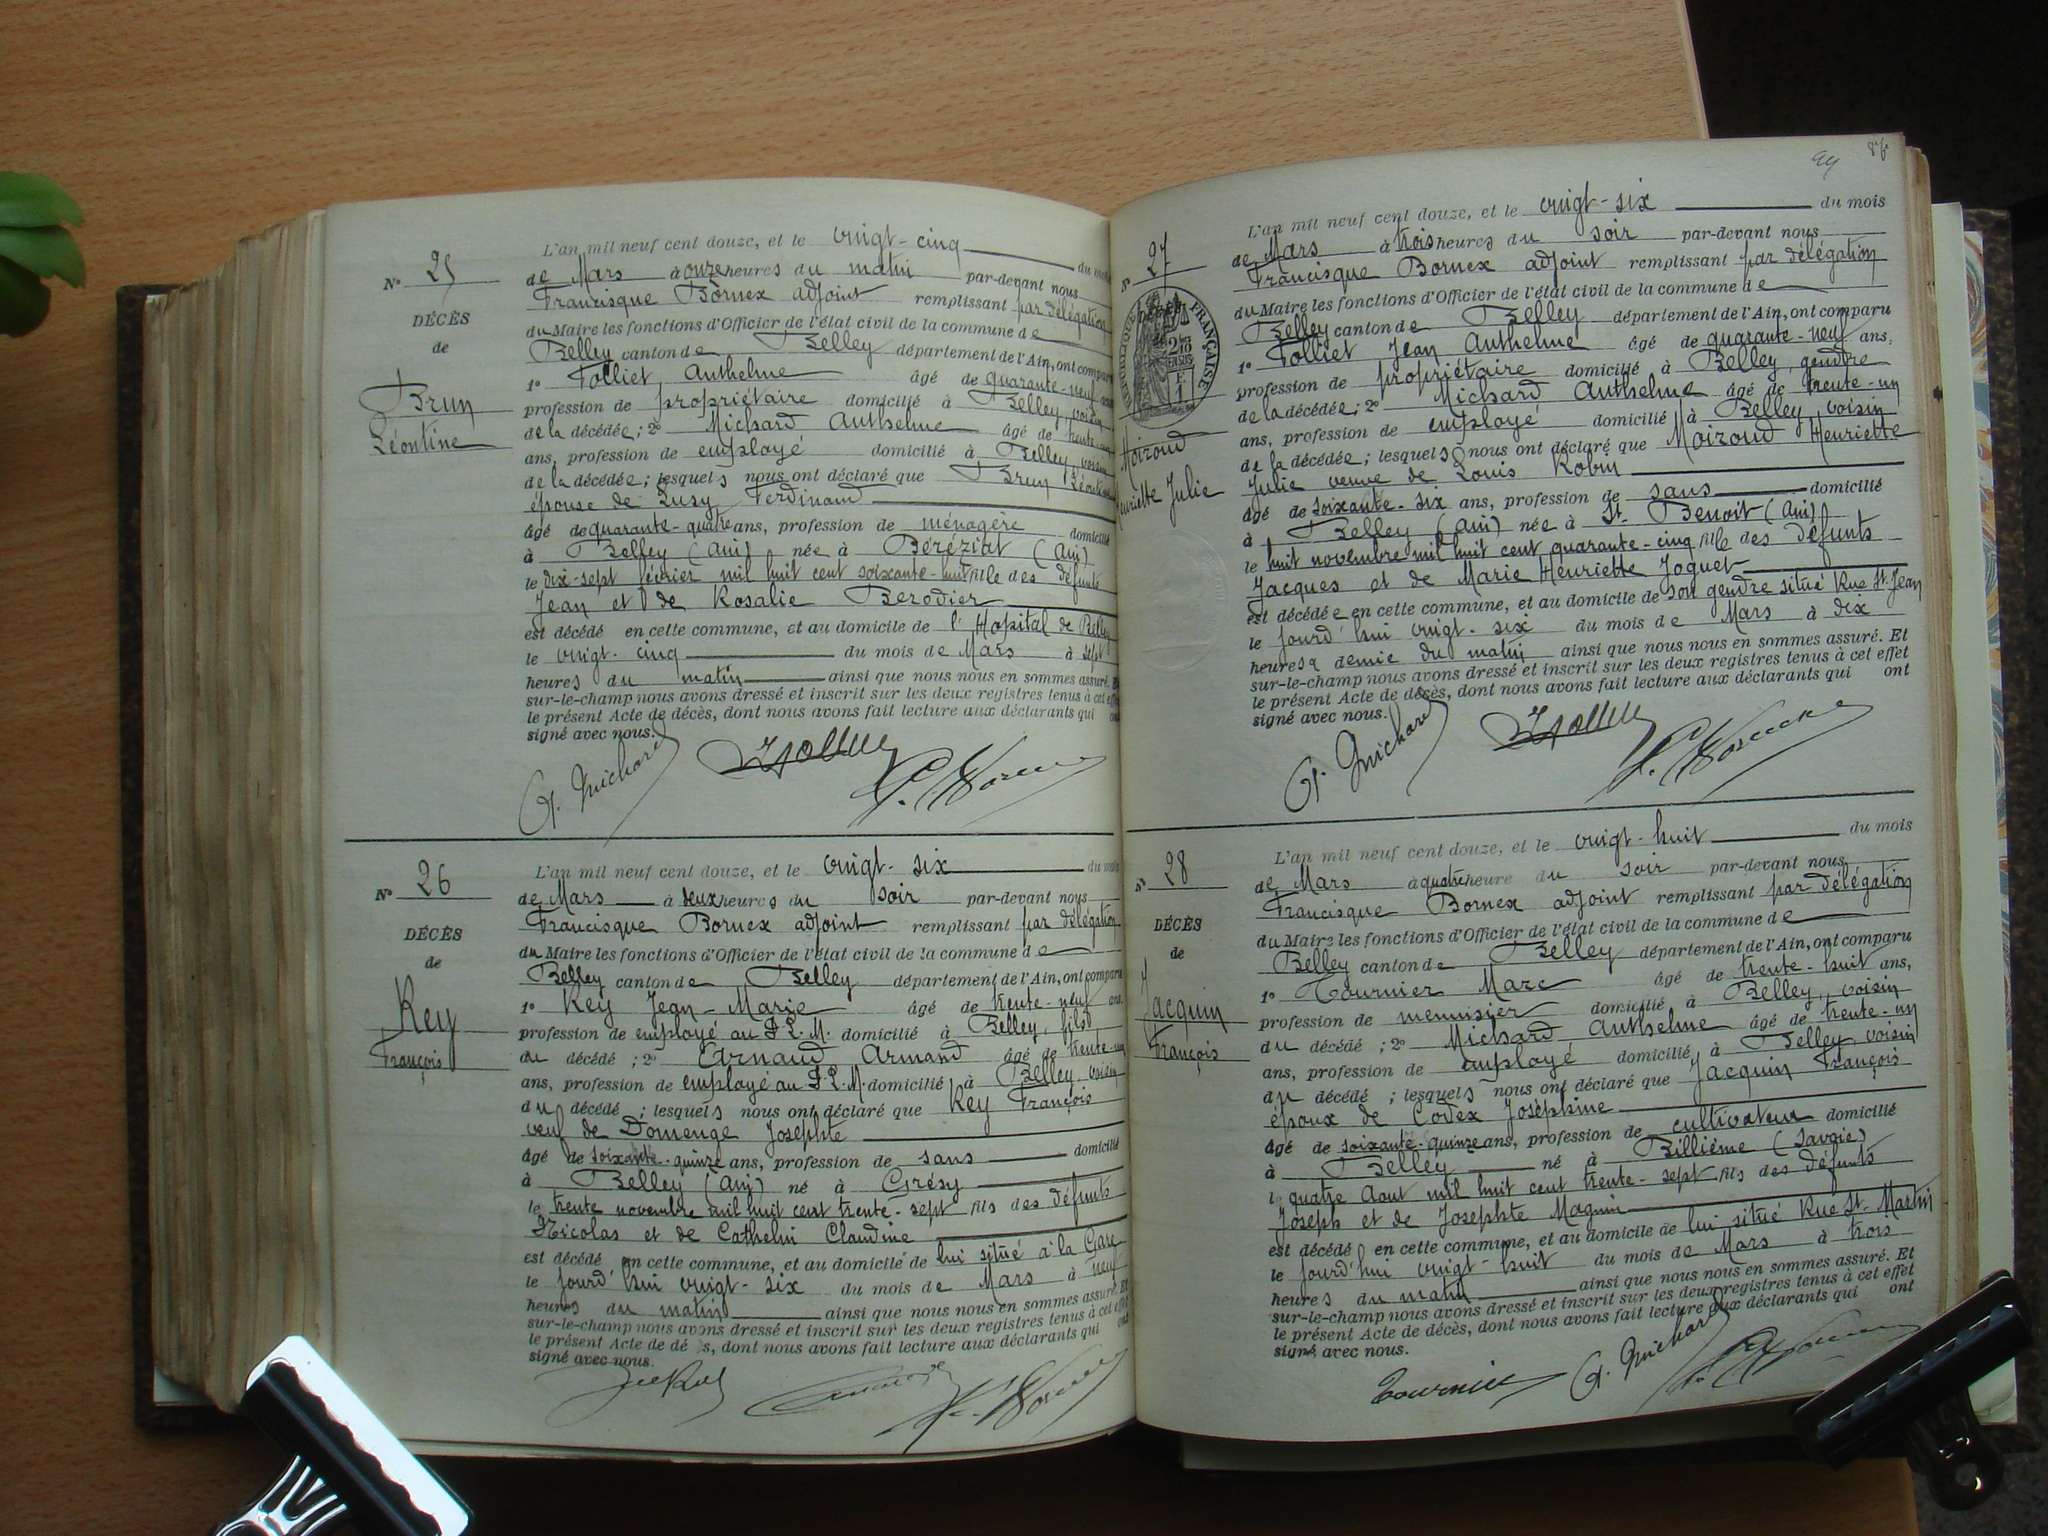 N° 25
DÉCÈS
de
Brun
Léontine
L'an mil neuf cent douze, et le vingt-cinq du mois
de Mars à onze heures du matin par-devant nous
Francisque Bornex adjoint remplissant par délégation
du Maire les fonctions d'Officier de l'état civil de la commune de
Belley canton de Belley département de l'Ain, ont comparu
1° Folliet Anthelme âgé de quarante-neuf ans
profession de propriétaire domicilié à Belley, voisin
de la décédée; 2° Michard Anthelme âgé de trente-un
ans, profession de employé domicilié à Belley, voisin
de la décédée; lesquels nous ont déclaré que Brun Léontine
épouse de Lusy Ferdinand
âgé de quarante-quatre ans, profession de ménagère domicilié
à Belley (Ain) née à Béréziat (Ain)
le dix-sept février mil huit cent soixante-huit fille des défunts
Jean et de Rosalie Berodier
est décédé en cette commune, et au domicile de l'Hopital de Belley
le vingt-cinq du mois de Mars à sept
heures du matin ainsi que nous nous en sommes assuré. Et
sur-le-champ nous avons dressé et inscrit sur les deux registres tenus à cet effet
le présent Acte de décès, dont nous avons fait lecture aux déclarants qui ont
signé avec nous.
N° 26
DÉCÈS
de
Rey
François
L'an mil neuf cent douze, et le vingt-six du mois
de Mars à deux heures du soir par-devant nous
Francisque Bornex adjoint remplissant par délégation
du Maire les fonctions d'Officier de l'état civil de la commune de
Belley canton de Belley département de l'Ain, ont comparu
1° Rey Jean-Marie âgé de trente-neuf ans
profession de employé au P.L.M. domicilié à Belley, fils
du décédé; 2° Armand âgé de trente-un
ans, profession de employé au P.L.M. domicilié à Belley, voisin
du décédé; lesquels nous ont déclaré que Rey François
veuf de Domenge Josephte
âgé de soixante-quinze ans, profession de sans domicilié
à Belley (Ain) né à Grésy
le trente novembre mil huit cent trente-sept fils des défunts
Nicolas et de Cathelin Claudine
est décédé en cette commune, et au domicile de lui situé à la Gare
le jourd'hui vingt-six du mois de Mars à neuf
heures du matin ainsi que nous nous en sommes assuré. Et
sur-le-champ nous avons dressé et inscrit sur les deux registres tenus à cet effet
le présent Acte de décès, dont nous avons fait lecture aux déclarants qui ont
signé avec nous.
N° 27
RÉPUBLIQUE FRANÇAISE
Moiroud
Henriette Julie
L'an mil neuf cent douze, et le vingt-six du mois
de Mars à trois heures du soir par-devant nous
Francisque Bornex adjoint remplissant par délégation
du Maire les fonctions d'Officier de l'état civil de la commune de
Belley canton de Belley département de l'Ain, ont comparu
1° Folliet Jean Anthelme âgé de quarante-neuf ans,
profession de propriétaire domicilié à Belley, gendre
de la décédée; 2° Michard Anthelme âgé de trente-un
ans, profession de employé domicilié à Belley, voisin
de la décédée; lesquels nous ont déclaré que Moiroud Henriette
Julie veuve de Louis Robin
âgé de soixante-six ans, profession de sans domicilié
à Belley (Ain) née à St. Benoit (Ain)
le huit novembre mil huit cent quarante-cinq fille des défunts
Jacques et de Marie Henriette Joguet
est décédée en cette commune, et au domicile de son gendre situé Rue St. Jean
le jourd'hui vingt-six du mois de Mars à dix
heures demie du matin ainsi que nous nous en sommes assuré. Et
sur-le-champ nous avons dressé et inscrit sur les deux registres tenus à cet effet
le présent Acte de décès, dont nous avons fait lecture aux déclarants qui ont
signé avec nous.
N° 28
DÉCÈS
de
Jacquin
François
L'an mil neuf cent douze, et le vingt-huit du mois
de Mars à quatre heure du soir par-devant nous
Francisque Bornex adjoint remplissant par délégation
du Maire les fonctions d'Officier de l'état civil de la commune de
Belley canton de Belley département de l'Ain, ont comparu
1° Tournier Marc âgé de trente-huit ans,
profession de menuisier domicilié à Belley, voisin
du décédé; 2° Michard Anthelme âgé de trente-un
ans, profession de employé domicilié à Belley voisin
du décédé; lesquels nous ont déclaré que Jacquin François
époux de Codex Joséphine
âgé de soixante-quinze ans, profession de cultivateur domicilié
à Belley né à Billième (Savoie)
le quatre Aout mil huit cent trente-sept fils des défunts
Joseph et de Josephte Magnin
est décédé en cette commune, et au domicile de lui situé Rue St. Martin
le jourd'hui vingt-huit du mois de Mars à trois
heures du matin ainsi que nous nous en sommes assuré. Et
sur-le-champ nous avons dressé et inscrit sur les deux registres tenus à cet effet
le présent Acte de décès, dont nous avons fait lecture aux déclarants qui ont
signé avec nous.
Tournier